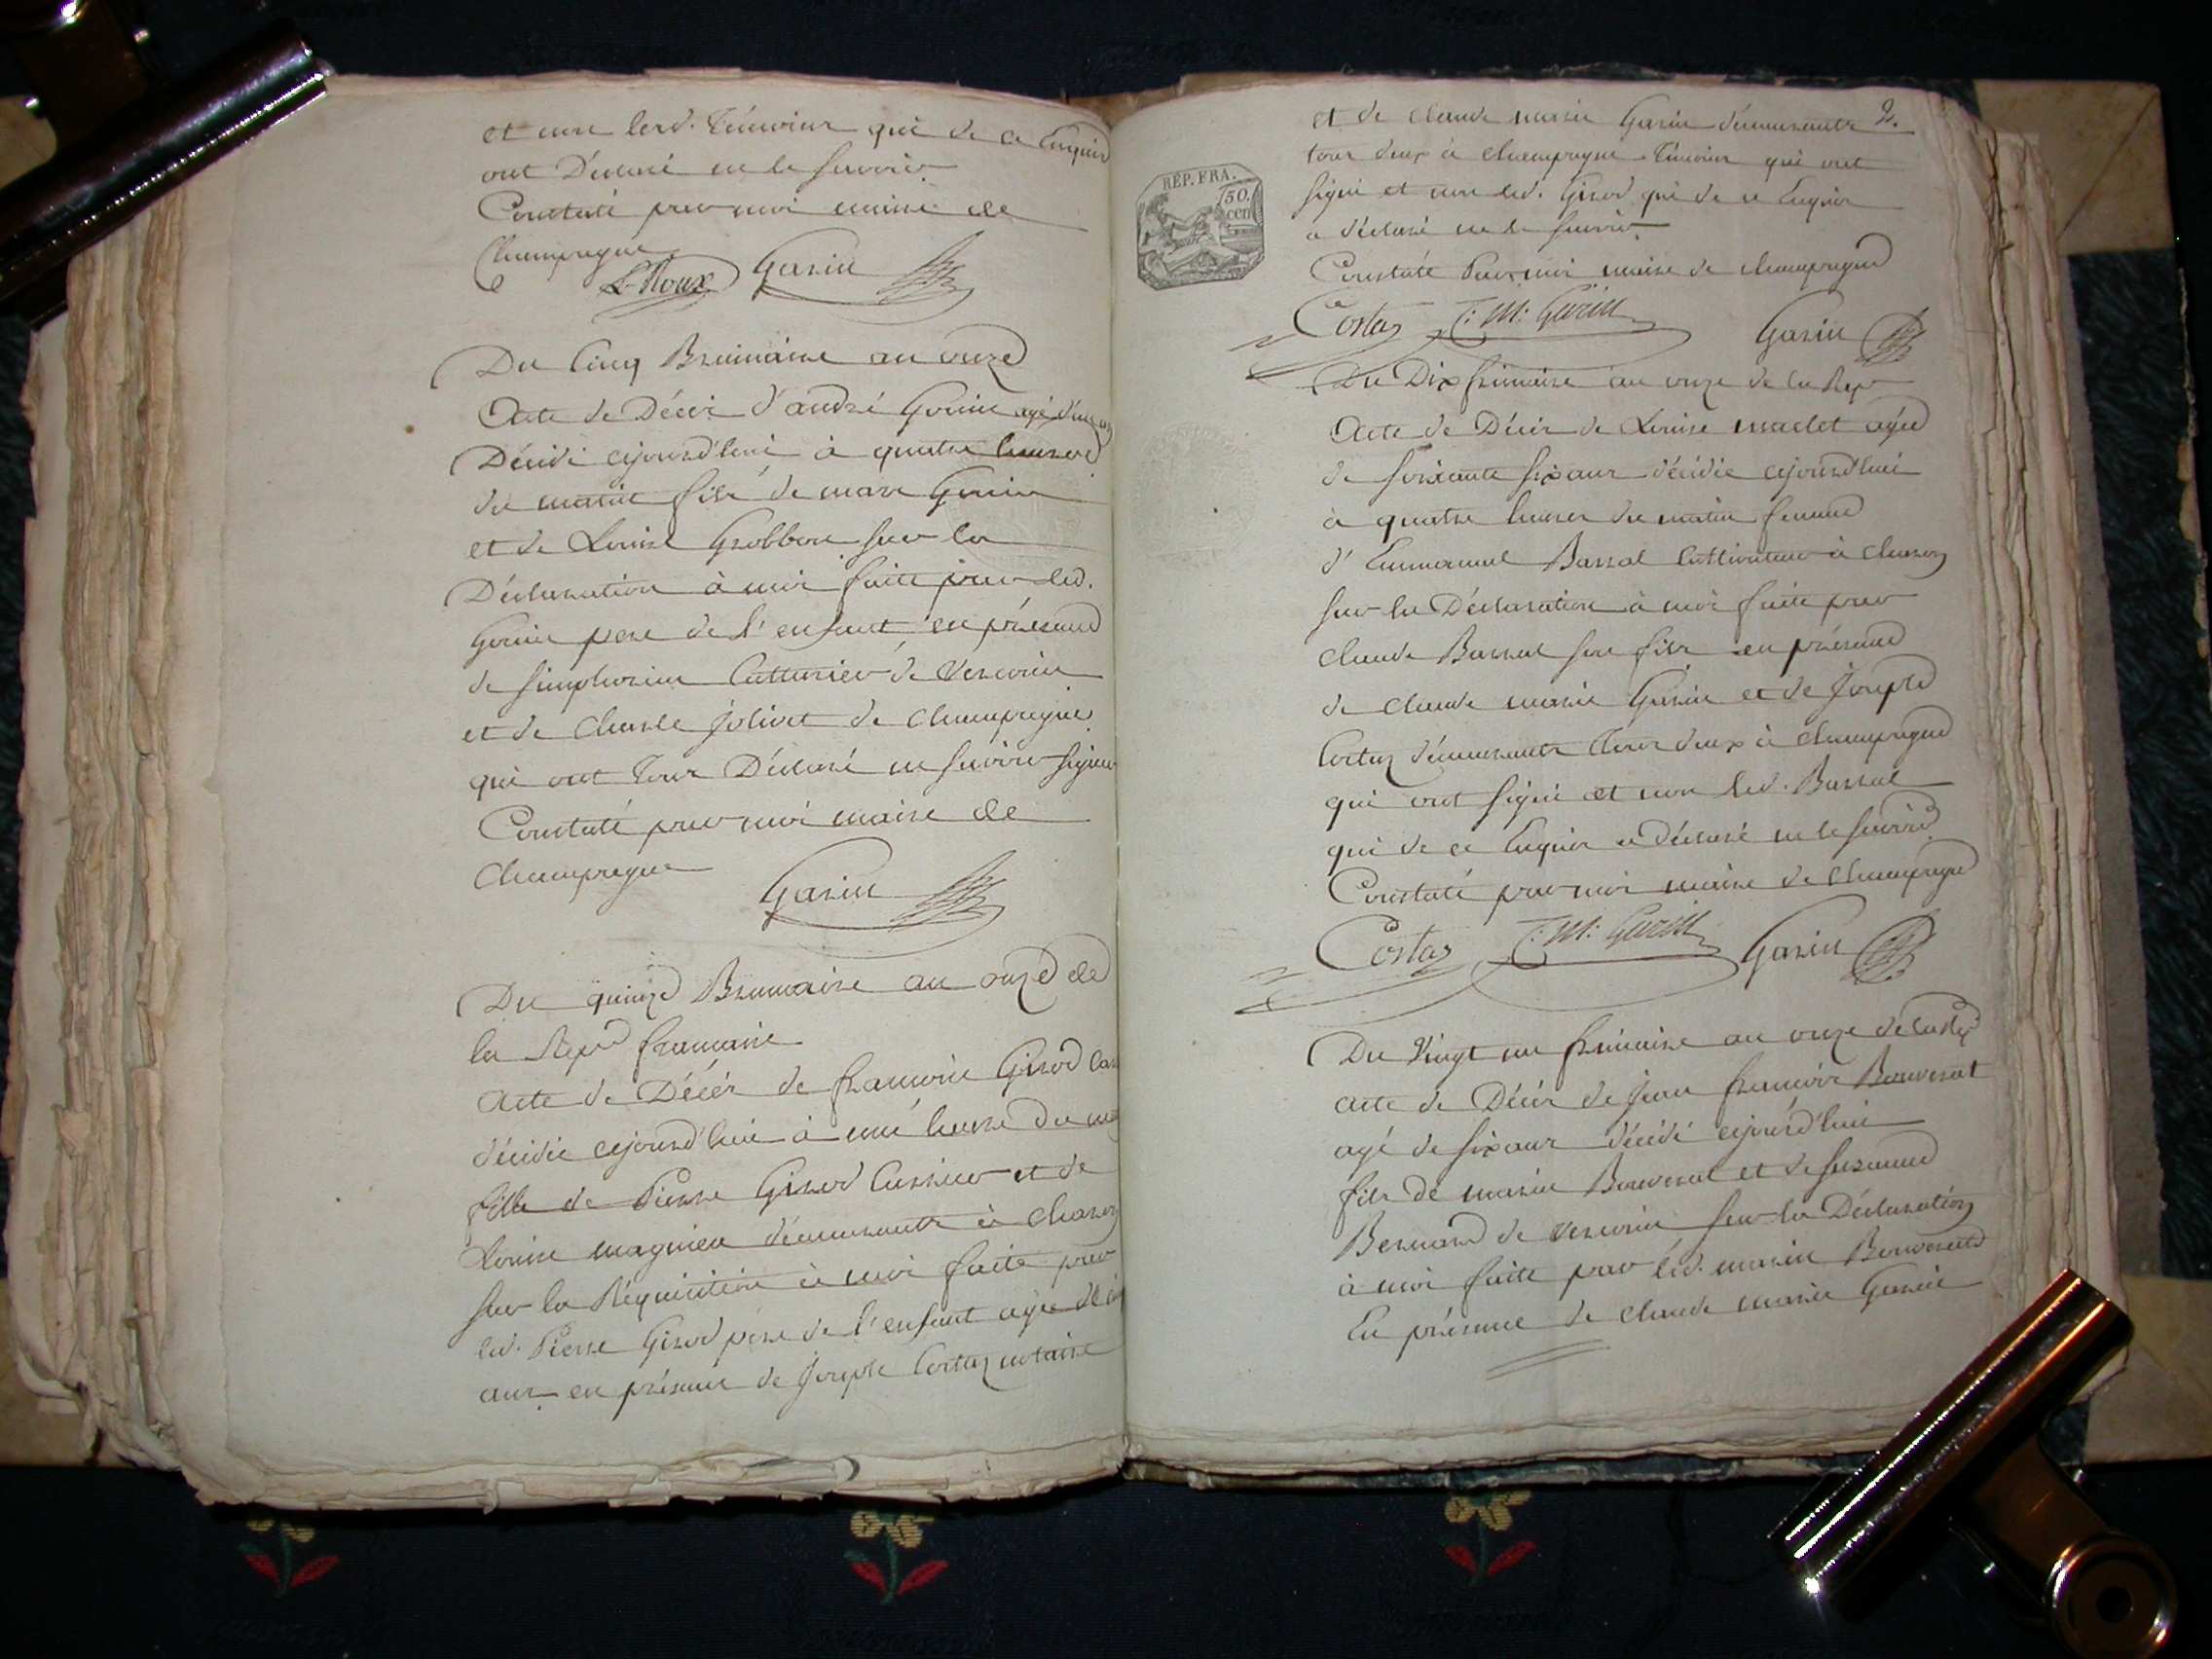 et non lesd. Témoins qui de ce Enquis
ont Déclaré ne le savoir
Constaté par moi maire de
Champagne
L. Roux Garin
Du Cinq Brumaire an onze
Acte de Décès d'andré Gonin agé d'un an
Décédé cejourd'hui à quatre heures
du matin fils de marc Gonin
et de Louise Grobbon sur la
Déclaration à moi faite par led.
Gonin pere de l'enfant en présence
de simphorien Cutturier de
et de Charle Jolivet de Champagne
qui ont Tous Déclaré ne savoir signer
Constaté par moi maire de
Champagne
Garin
Du quinze Brumaire an onze de
la Repe francaise
Acte de Décés de francoise Girod
décédée cejourd'hui à une heure du
fille de Pierre Girod et de
Louise magnien démeurants à
sur la Réquisition à moi faite par
led. Pierre Girod pere de l'enfant agée de
ans en présence de Joseph Costaz notaire
2.
et de claude marie Garin démeurants
tous deux à champagne Témoins qui ont
signé et non led. Girod qui de ce Enquis
a déclaré ne le savoir
Constaté Par moi maire de champagne
RÉP. FRA.
50.
cen
Costaz C: M: Garin Garin
Du Dix frimaire an onze de la Rep
Acte de Décés de Louise maclet agée
de soixante six ans décédée cejourd'hui
à quatre heures du matin femme
d'Emmanuel Barral Cultivateur à
sur la Déclaration à moi faite par
claude Barral son fils en présence
de claude marie Garin et de Joseph
Costaz démeurants Tous deux à champagne
qui ont signé et non led. Barral
qui de ce Enquis a déclaré ne le savoir
Constaté par moi maire de champagne
Costaz C: M: Garin Garin
Du Vingt un frimaire an onze de la Rep
acte de Décés de Jean francois Bouverat
agé de six ans décédé cejourd'hui
fils de marin Bouverat et de susanne
Bernard de sur la Déclaration
à moi faite par led. marin Bouverat
En présence de claude marie Garin